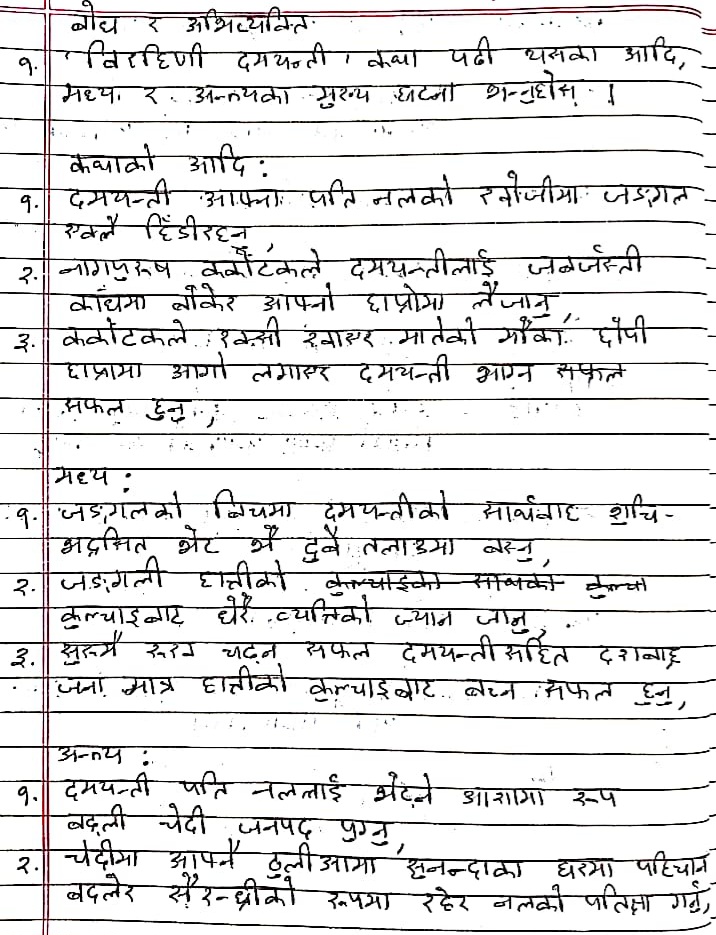 बोध र अभिव्यक्ति
१. 'विरहिणी दमयन्ती' कथा पढी यसका आदि,
मध्य र अन्त्यका मुख्य घटना भन्नुहोस् ।
कथाको आदि :
१. दमयन्ती आफ्ना पति नलको खोजीमा जङ्गल
एक्लै हिँडीरहन,
२. नागपुरुष कर्कोटकले दमयन्तीलाई जबर्जस्ती
काँधमा बोकेर आफ्नो छाप्रोमा लैजानु,
३. कर्कोटकले रक्सी खाएर मातेको मौका छोपी
छाप्रामा आगो लगाएर दमयन्ती भाग्न सफल
सफल हुनु,
मध्य :
१. जङ्गलको बिचमा दमयन्तीको सार्थवाह शुचि-
भद्रसित भेट भै दुवै तलाउमा बस्नु,
२. जङ्गली हात्तीको कुल्चाइका साथका कुल्चा
कुल्चाइबाट धेरै व्यक्तिको ज्यान जानु,
३. सुरूमै रूख चढ्न सफल दमयन्तीसहित दशबाह्र
जना मात्र हात्तीको कुल्चाइबाट बच्न सफल हुनु,
अन्त्य :
१. दमयन्ती पति नललाई भेट्ने आशामा रूप
बदली चेदी जनपद पुग्नु,
२. चेदीमा आफ्नै ठुलीआमा सुनन्दाका घरमा पहिचान
बदलेर सैरन्ध्रीको रूपमा रहेर नलको प्रतिक्षा गर्नु,